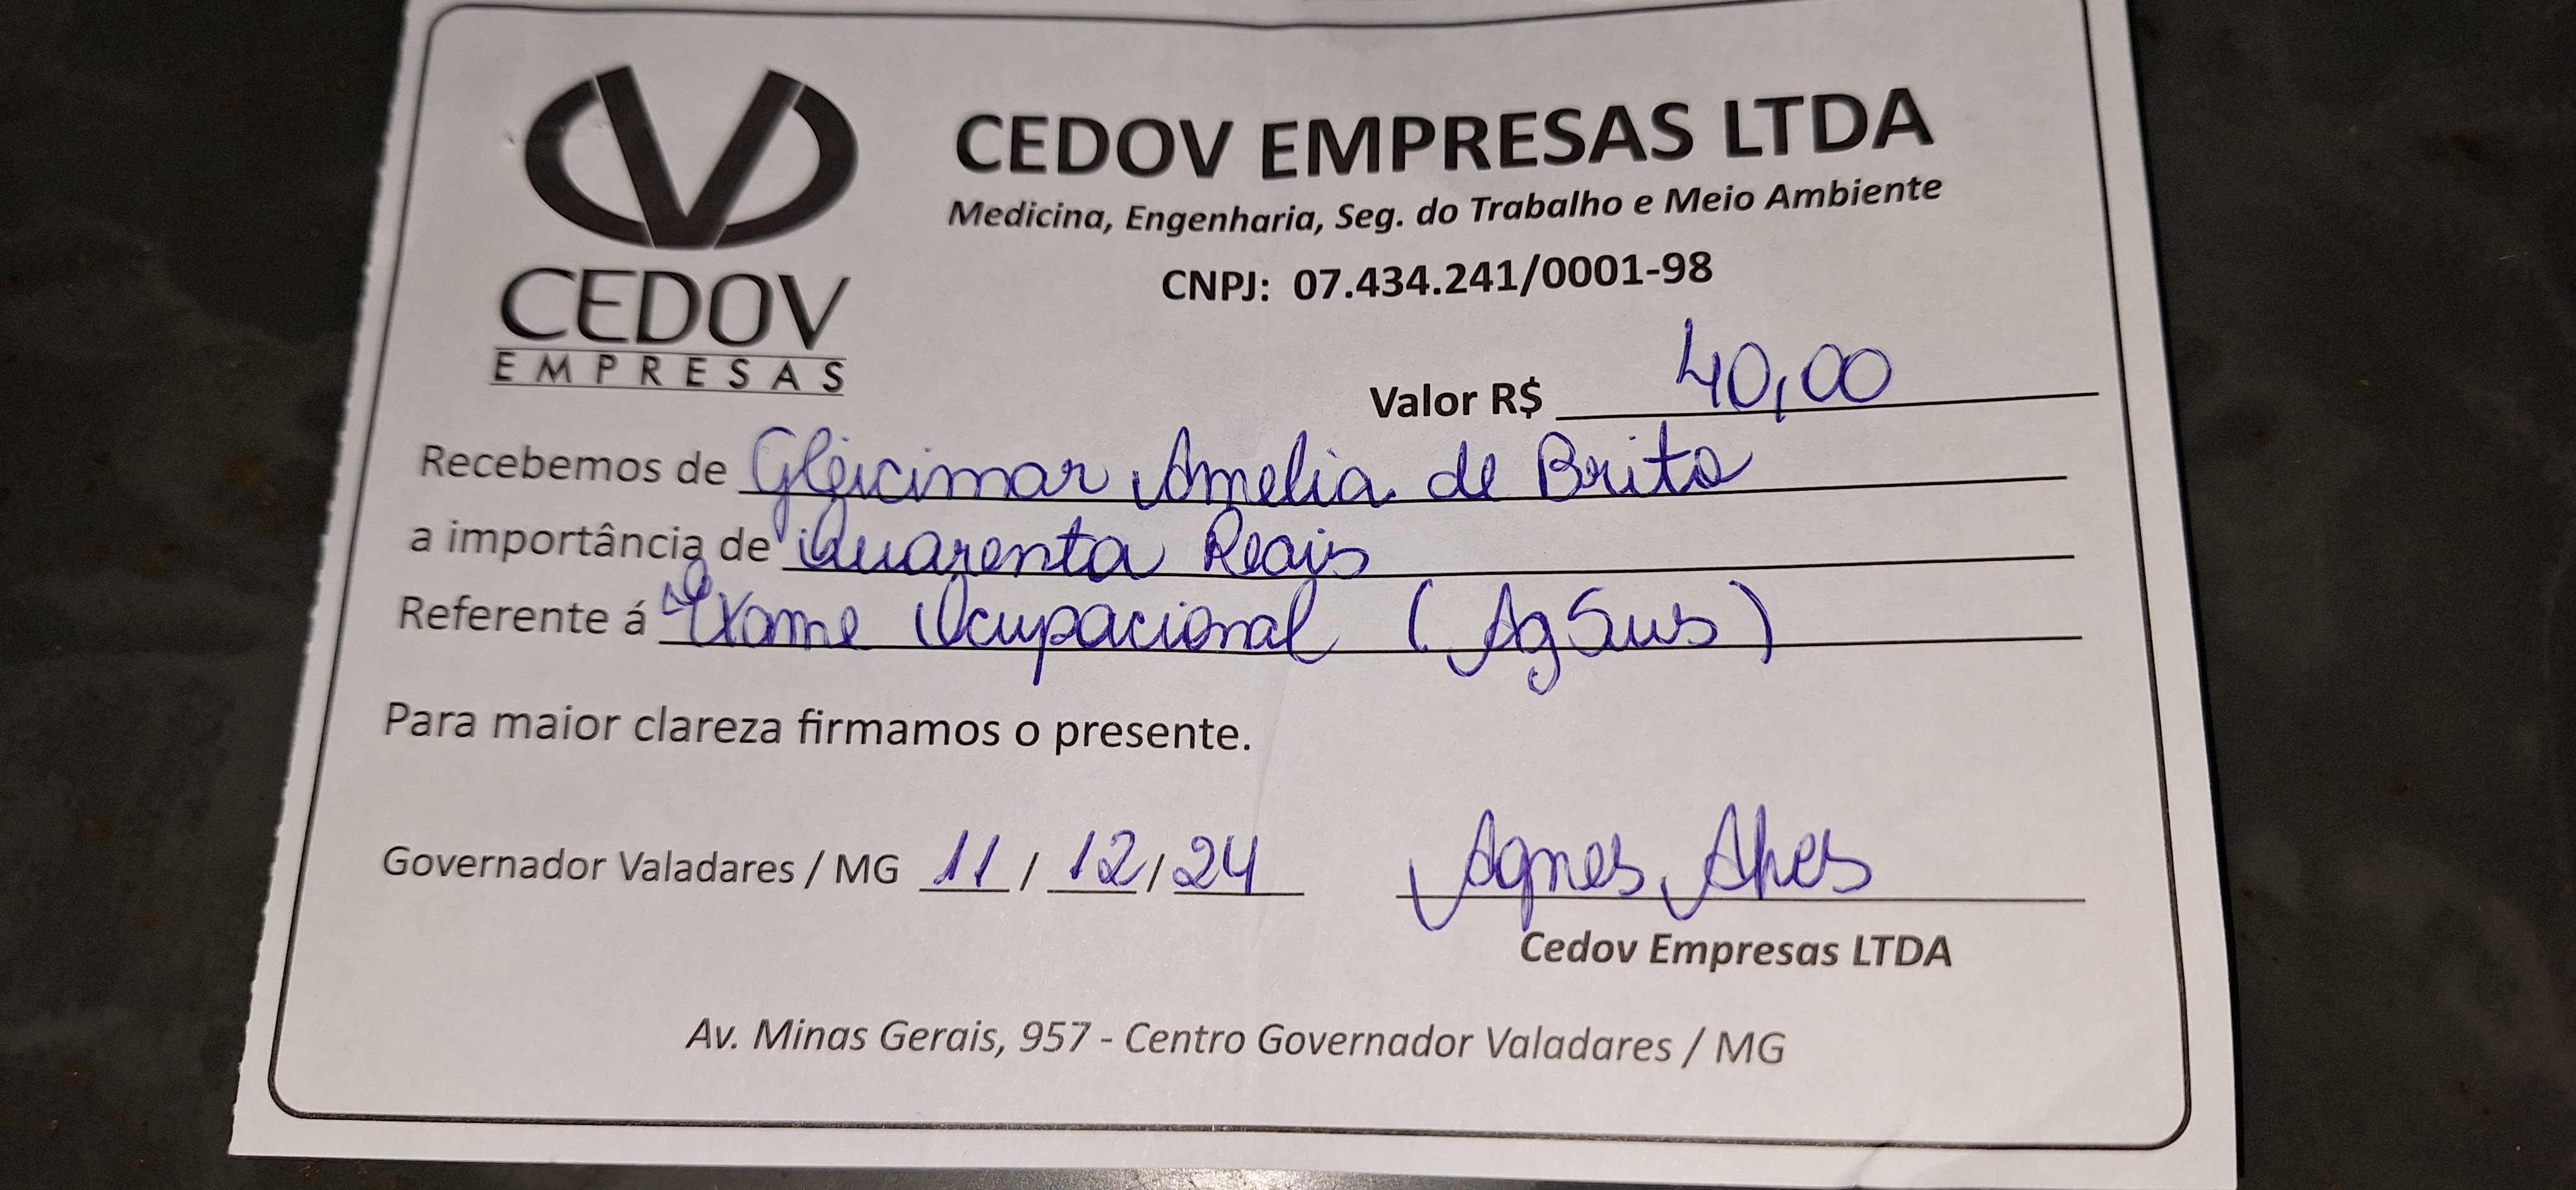 CEDOV
EMPRESAS
CEDOV EMPRESAS LTDA
Medicina, Engenharia, Seg. do Trabalho e Meio Ambiente
CNPJ: 07.434.241/0001-98
Valor R$ 40,00
Recebemos de Gleicimar Amelia de Brito
a importância de Quarenta Reais
Referente á Exame Ocupacional (AgSus)
Para maior clareza firmamos o presente.
Governador Valadares / MG 11 / 12 / 24 Agnes Alves
Cedov Empresas LTDA
Av. Minas Gerais, 957 - Centro Governador Valadares / MG